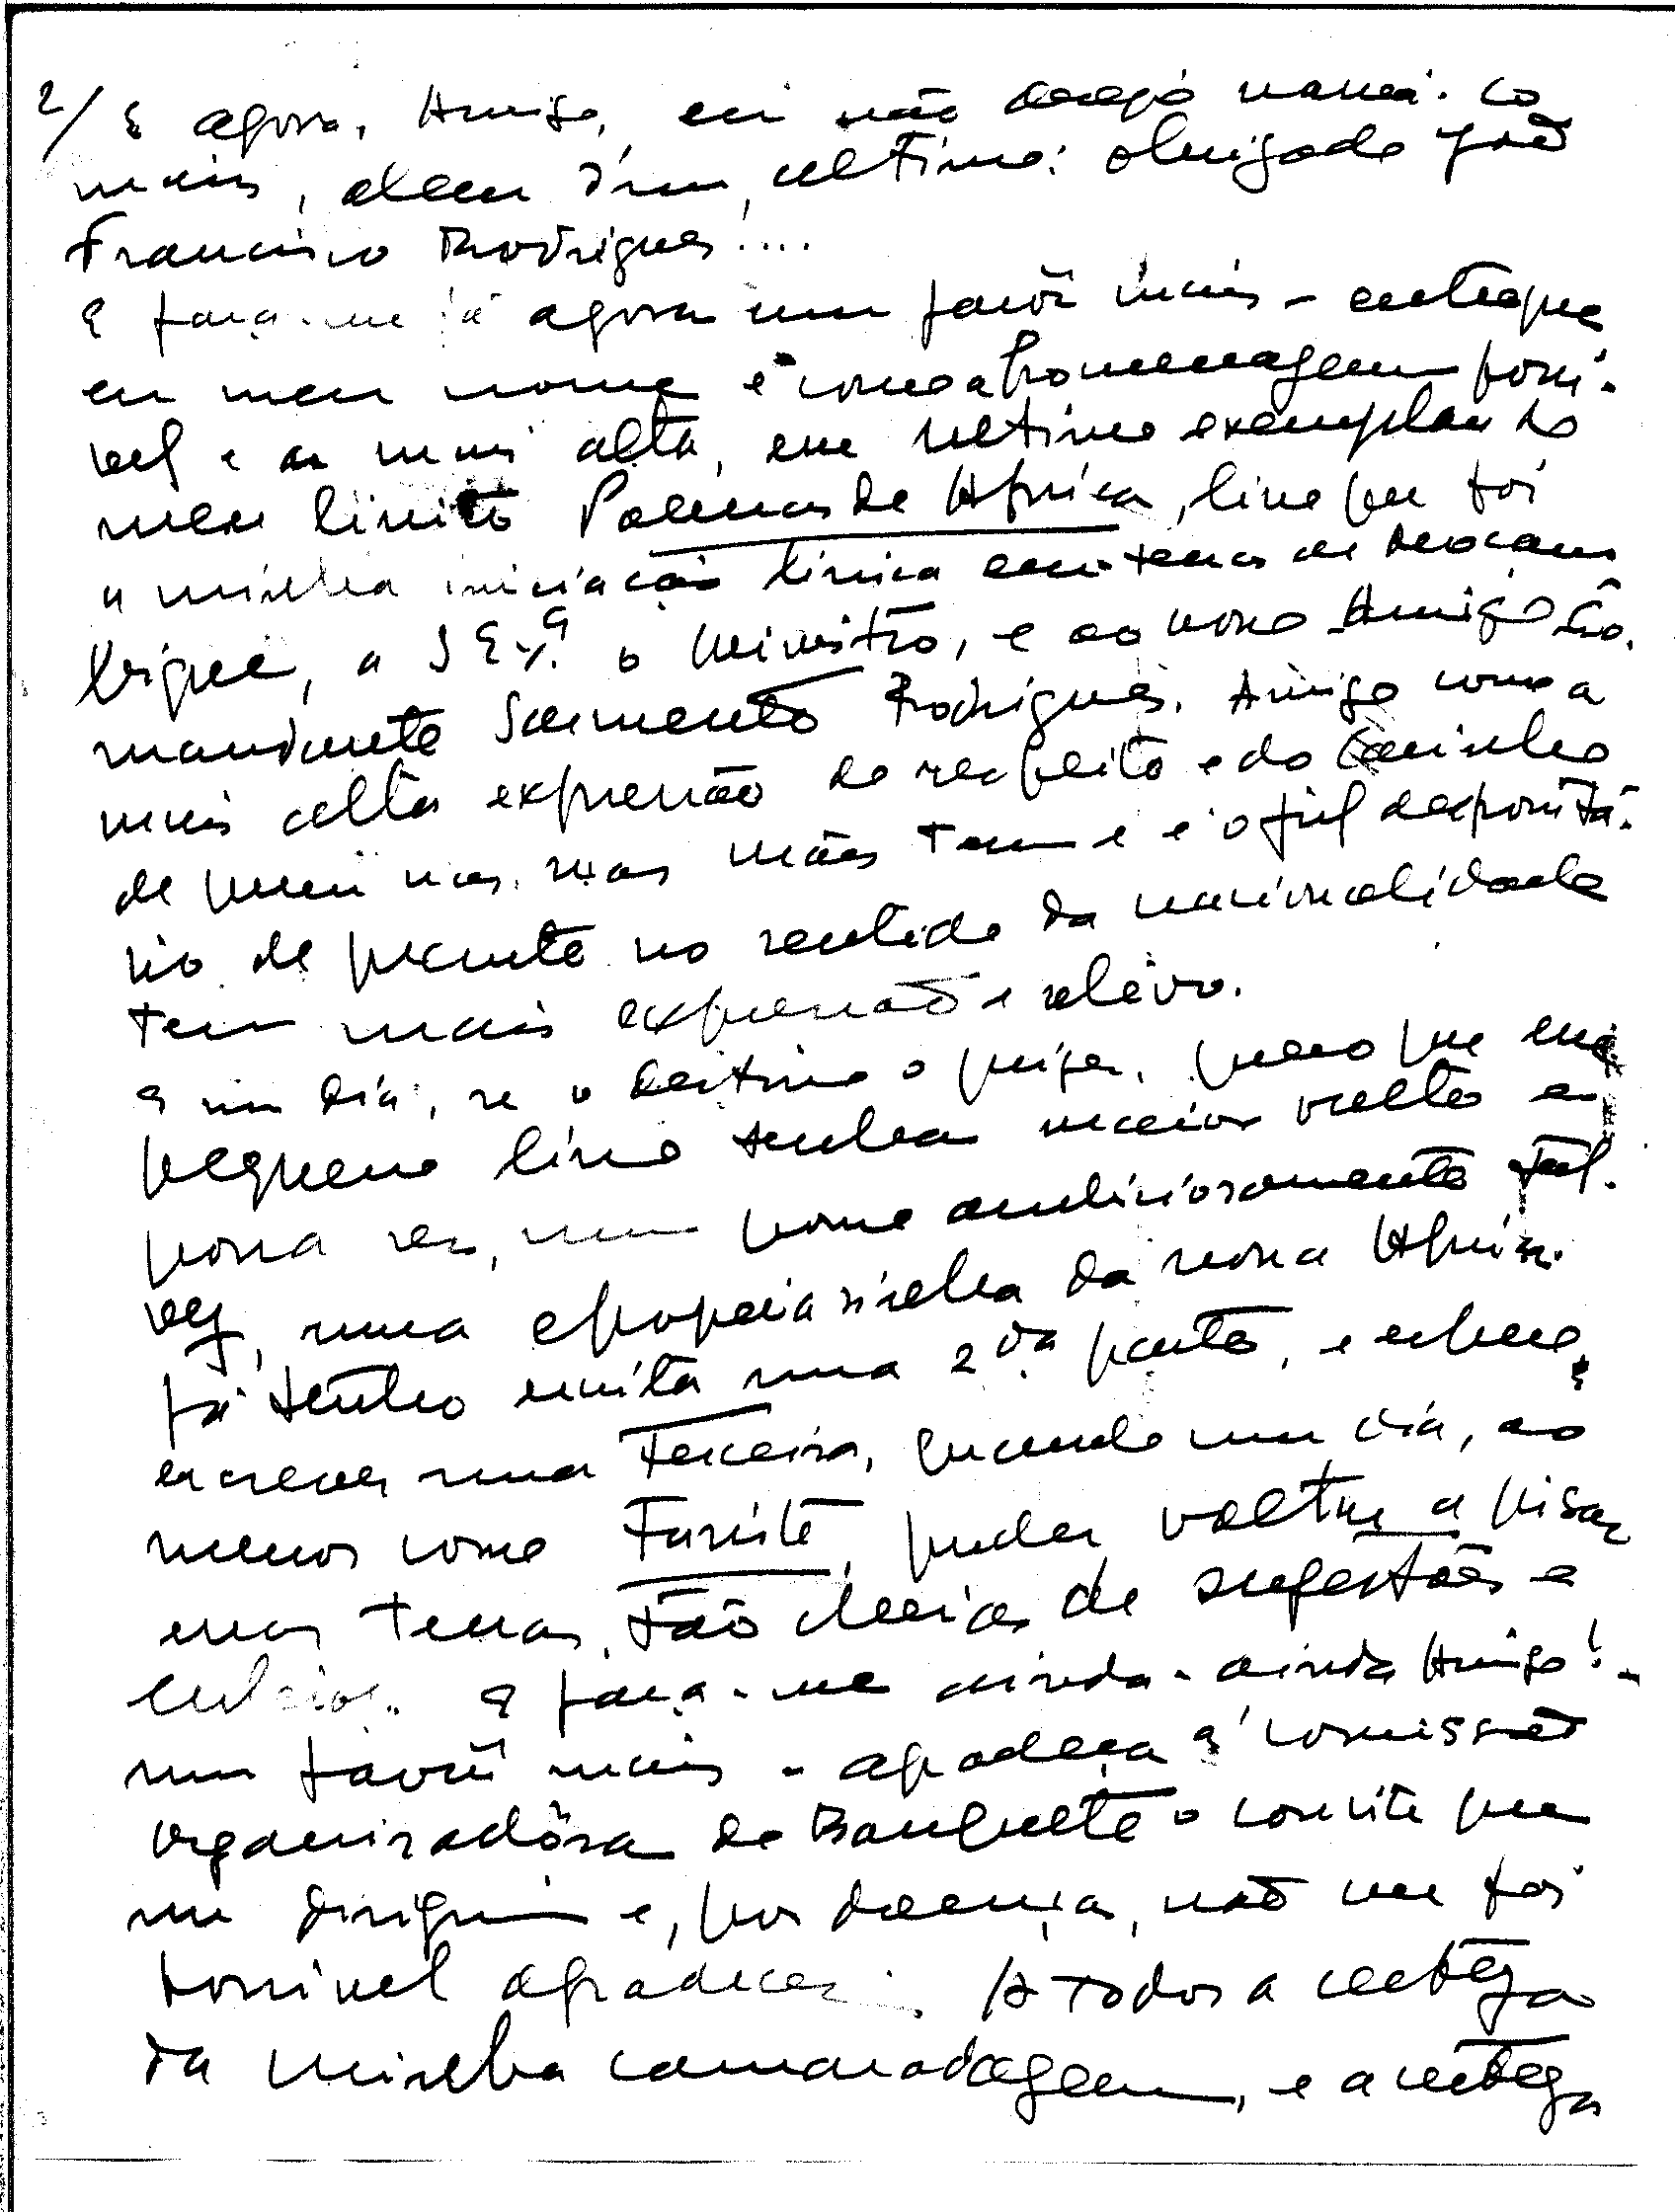 2/ E agora, Amigo, eu não desejo mais
mais, alem d'um ultimo: obrigado João
Francisco Rodrigues!....
E faça-me já agora um favôr mais - entregue
em meu nome e como a homenagem possi-
vel e a mais alta, um ultimo exemplar do
meu livrito Poemas de Africa, livro que foi
a minha iniciação lirica em terras de Mocam
bique, a S Exª o Ministro, e ao nosso Amigo Co-
mandante Sarmento Rodrigues. Amigo como a
mais alta expressão do respeito e do carinho
de quem nas suas mãos tem e é o fiel depositá-
rio de quanto no sentido da nacionalidade
tem mais expressão e relêvo.
E um dia, se o destino o quizer, quero que esse
pequeno livro tenha maior vulto e
possa ser, num poema ambiciosamente tal-
vez, uma epopeia da nossa Africa.
Já tenho escrita uma 2da parte, e espero
escrever uma Terceira, quando um dia, ao
menos como Turista, puder voltar a pisar
essas terras, tão cheias de sugestões e
E faça-me ainda - ainda Amigo! -
um favôr mais - agradeça á comissão
organizadôra do Banquete o convite que
me dirigiu e, por doença, não me foi
possivel agradecer. A todos a certeza
da minha camaradagem, e a certeza